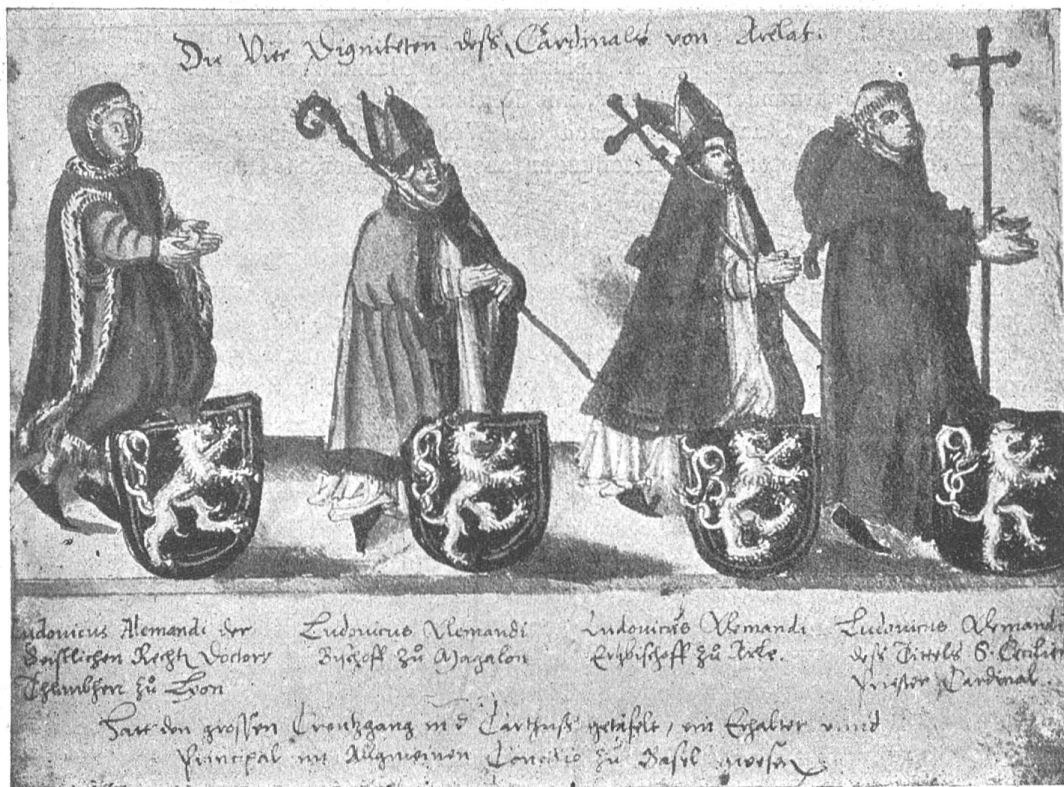 Die Vier Digniteten deß Cardinals von Arelat.
Ludouicus Alemandi der
Geistlichen Rechtẽ Doctorr
Thumbherr zů Lyon
Ludouicus Alemandi
Bischoff zů Magalon
Ludouicus Alemandi
Ertzbischoff zů Arle.
Ludouicus Alemandi
deß Tittels S. Cecilien
Priester Cardinal.
Hatt den grossen Creutzgang in d Carthuß getäfelt, ein Erhalter vnnd
Principal im Allgemeinen Concilio zů Basel gwesen